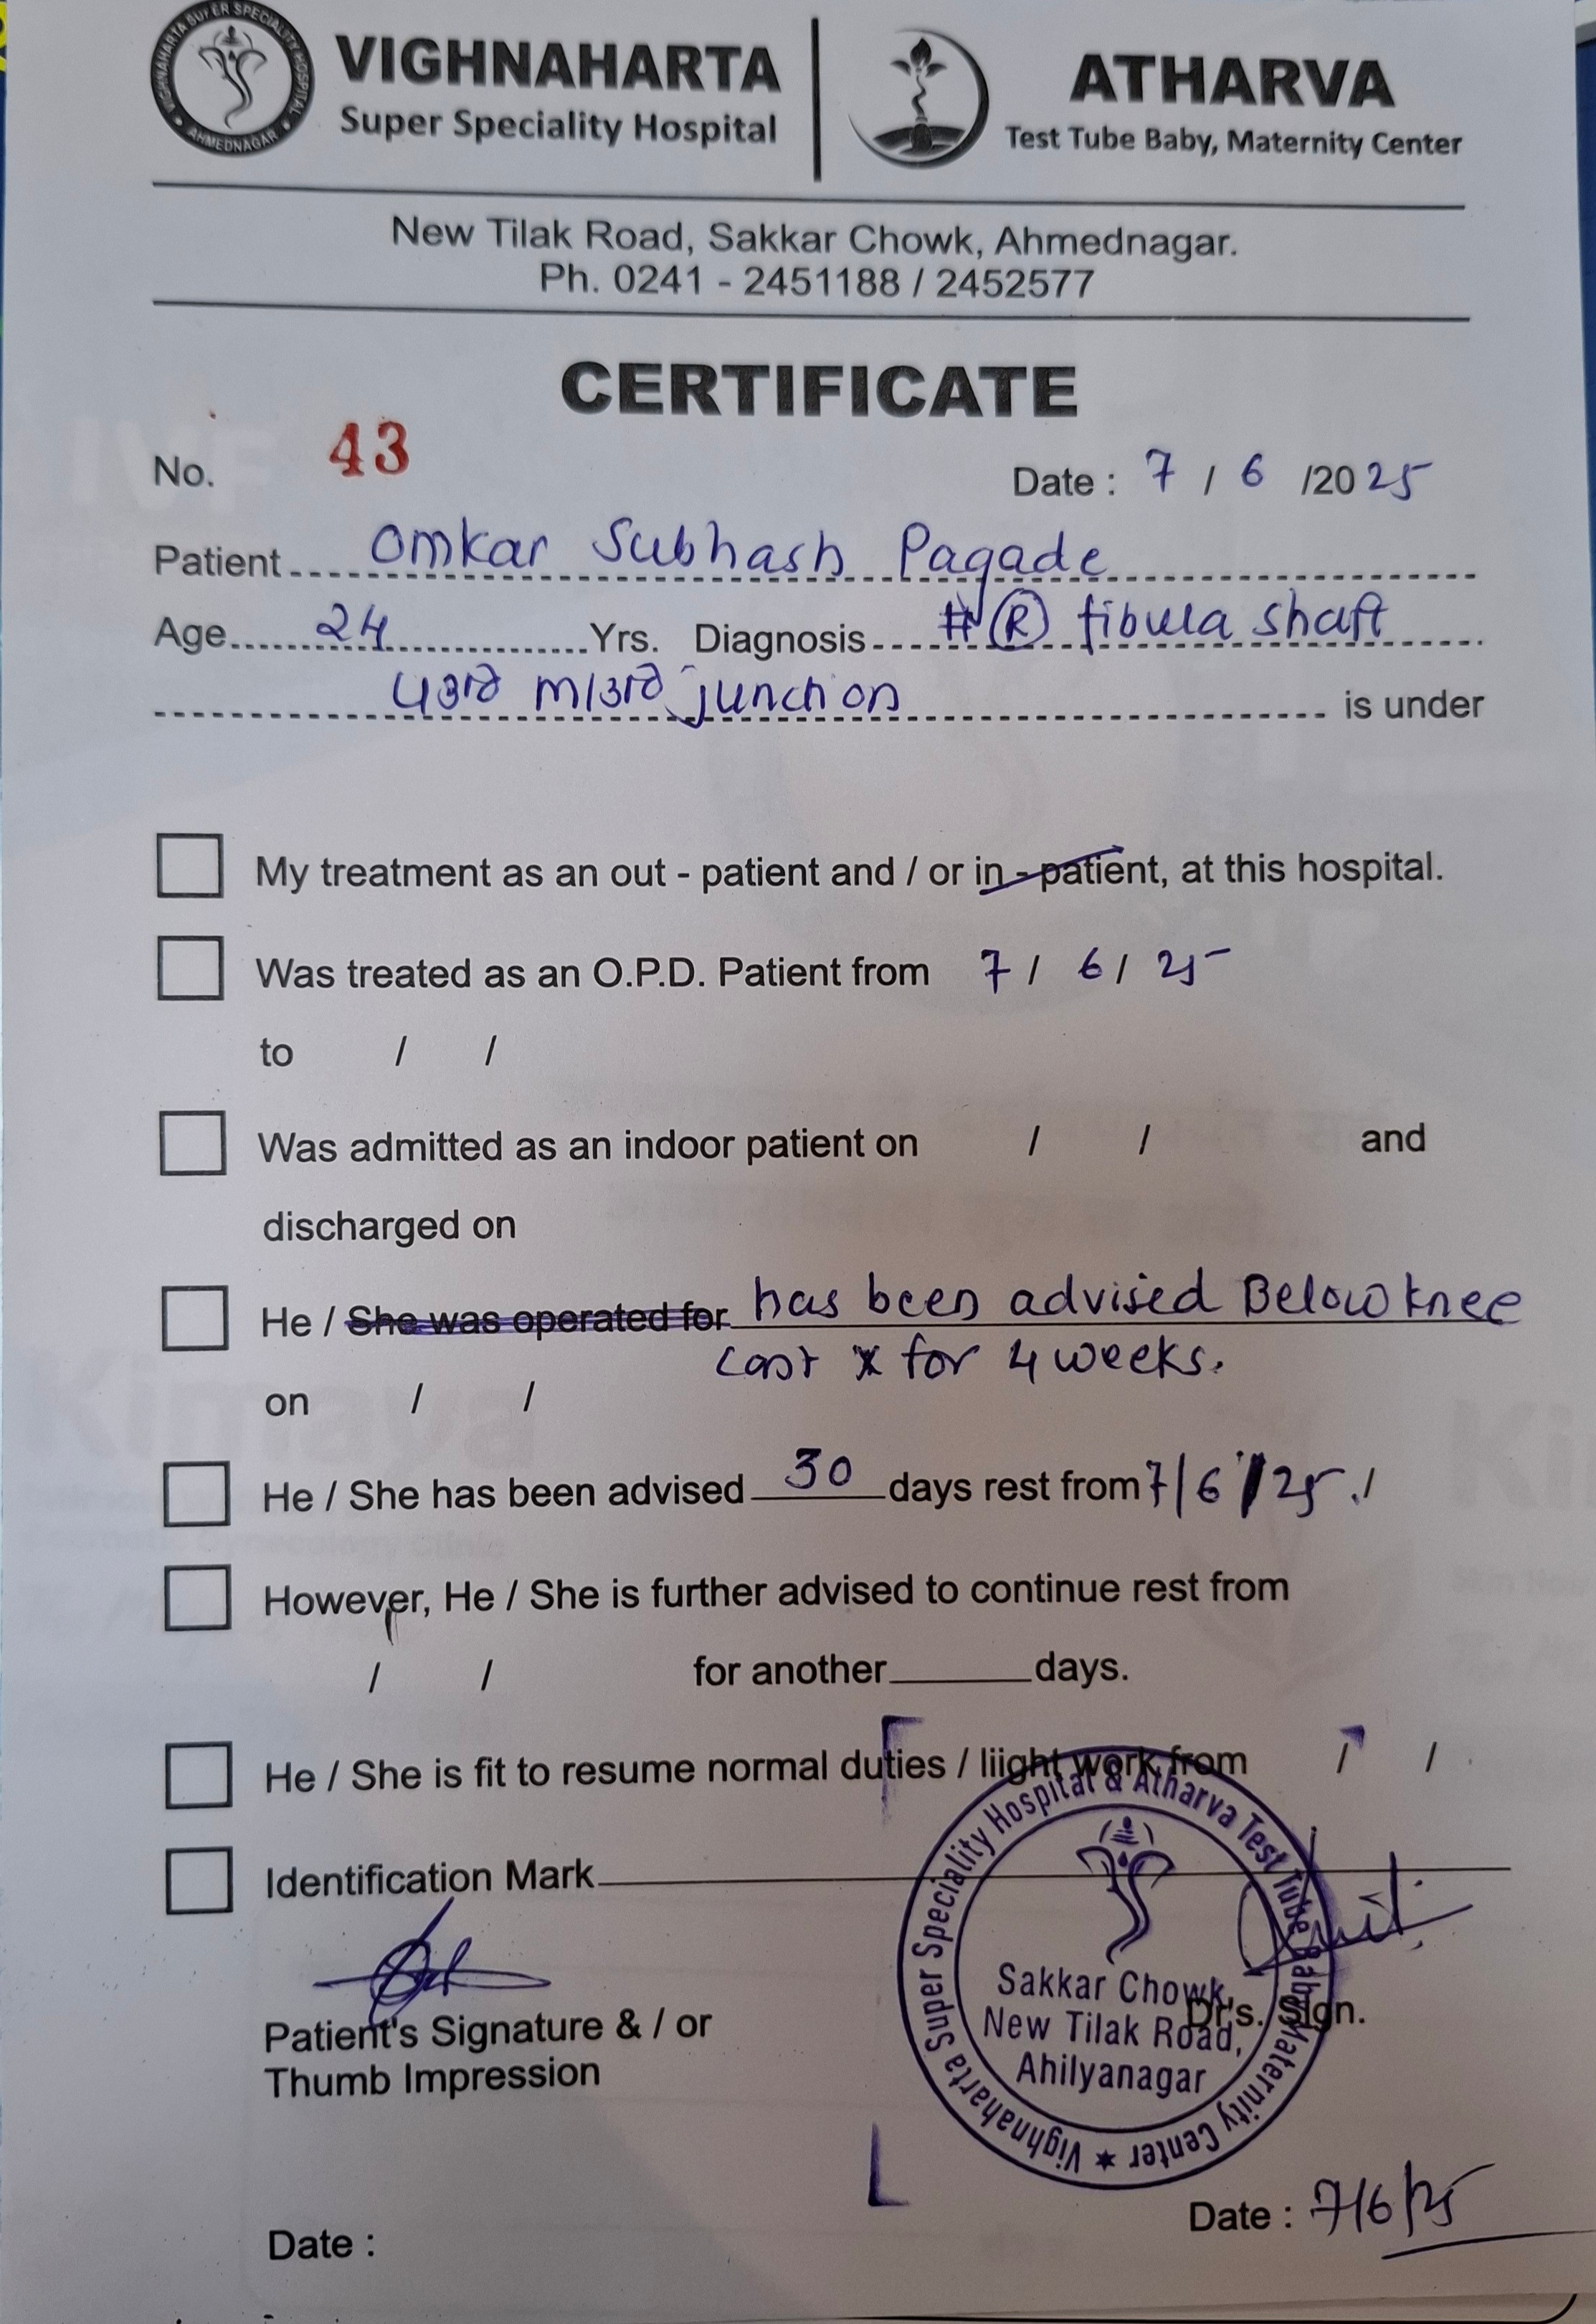 VIGHNAHARTA SUPER SPECIALITY HOSPITAL • AHMEDNAGAR •
VIGHNAHARTA
Super Speciality Hospital
ATHARVA
Test Tube Baby, Maternity Center
New Tilak Road, Sakkar Chowk, Ahmednagar.
Ph. 0241 - 2451188 / 2452577
CERTIFICATE
No. 43 Date : 7 / 6 /2025
Patient Omkar Subhash Pagade
Age 24 Yrs. Diagnosis # Ⓡ fibula shaft
U3rd m/3rd junction is under
My treatment as an out - patient and / or in - patient, at this hospital.
Was treated as an O.P.D. Patient from 7 / 6 / 25
to / /
Was admitted as an indoor patient on / / and
discharged on
He / She was operated for has been advised Below knee
cast x for 4 weeks.
on / /
He / She has been advised 30 days rest from 7/6/25 /
However, He / She is further advised to continue rest from
/ / for another days.
He / She is fit to resume normal duties / liight work from / /
Identification Mark
Vighnaharta Super Speciality Hospital & Atharva Test Tube Baby Maternity Center
Sakkar Chowk,
New Tilak Road,
Ahilyanagar
Dr's. Sign.
Patient's Signature & / or
Thumb Impression
Date : 7/6/25
Date :